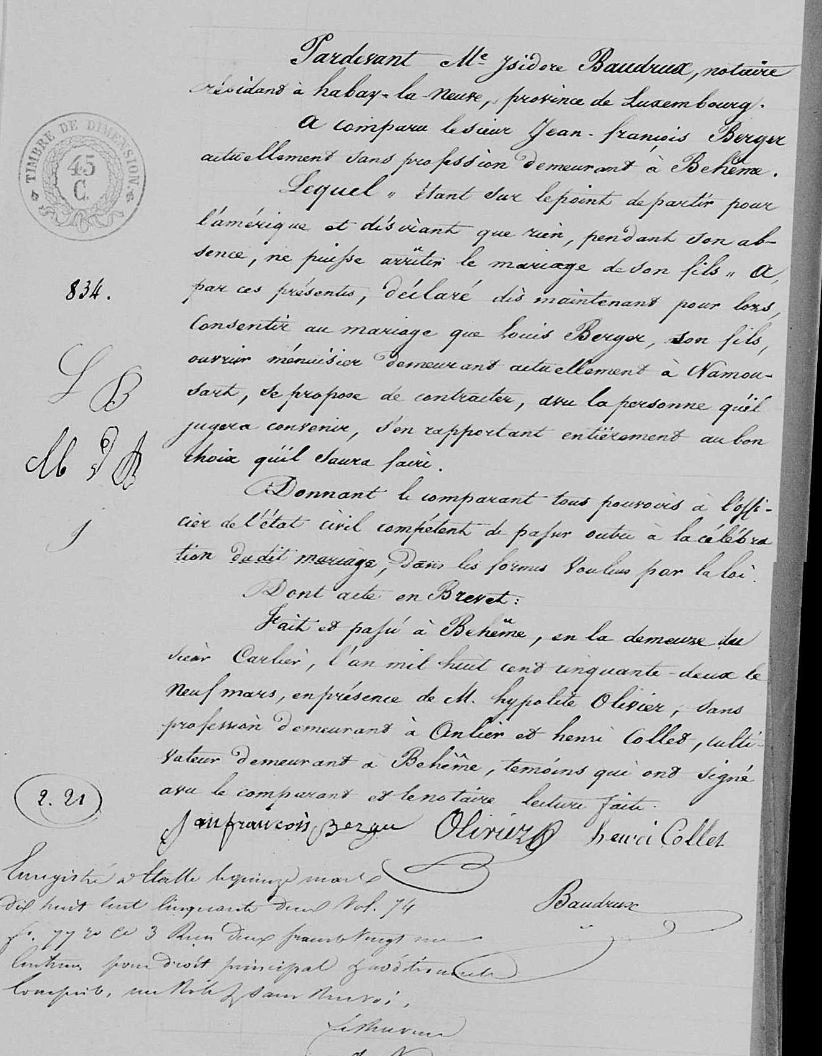 Pardevant Me Isidore Baudrux, notaire
résidant à habay-la-Neuve, province de Luxembourg.
A comparu le sieur Jean-françois Berger
actuellement sans profession demeurant à Behême.
TIMBRE DE DIMENSION.
45
C.
Lequel „ étant sur le point de partir pour
l'amérique et désirant que rien, pendant son ab-
sence, ne puisse arrêter le mariage de son fils „ A,
834.
par ces présentes, déclaré dès maintenant pour lors,
Consentir au mariage que louis Berger, son fils,
ouvrier ménuisier demeurant actuellement à Namou-
sart, se propose de contracter, avec la personne qu'il
L B
jugera convenir, s'en rapportant entièrement au bon
choix qu'il saura faire.
Donnant le comparant tous pouvoirs à l'offi-
cier de l'état civil compétent de passer outre à la célébra
tion dudit mariage, dans les formes voulues par la loi.
Dont acte en Brevet:
Fait et passé à Behême, en la demeure du
sieur Carlier, l'an mil huit cent cinquante-deux le
Neuf mars, en présence de M. hypolite Olivier, sans
profession demeurant à Anlier et henri Collet, culti-
vateur demeurant à Behême, temoins qui ont signé
avec le comparant et le notaire lecture faite.
2.21
Jean françois Berger Olivier henri Collet
Baudrux
Enregistré à le quinze mars
dix huit cent cinquante deux Vol. 74
fo. 77 ro Ce 3 Reçu deux francs vingt un
Centimes pour droit principal & additionnels
compris, un Rôle & sans Renvoi.